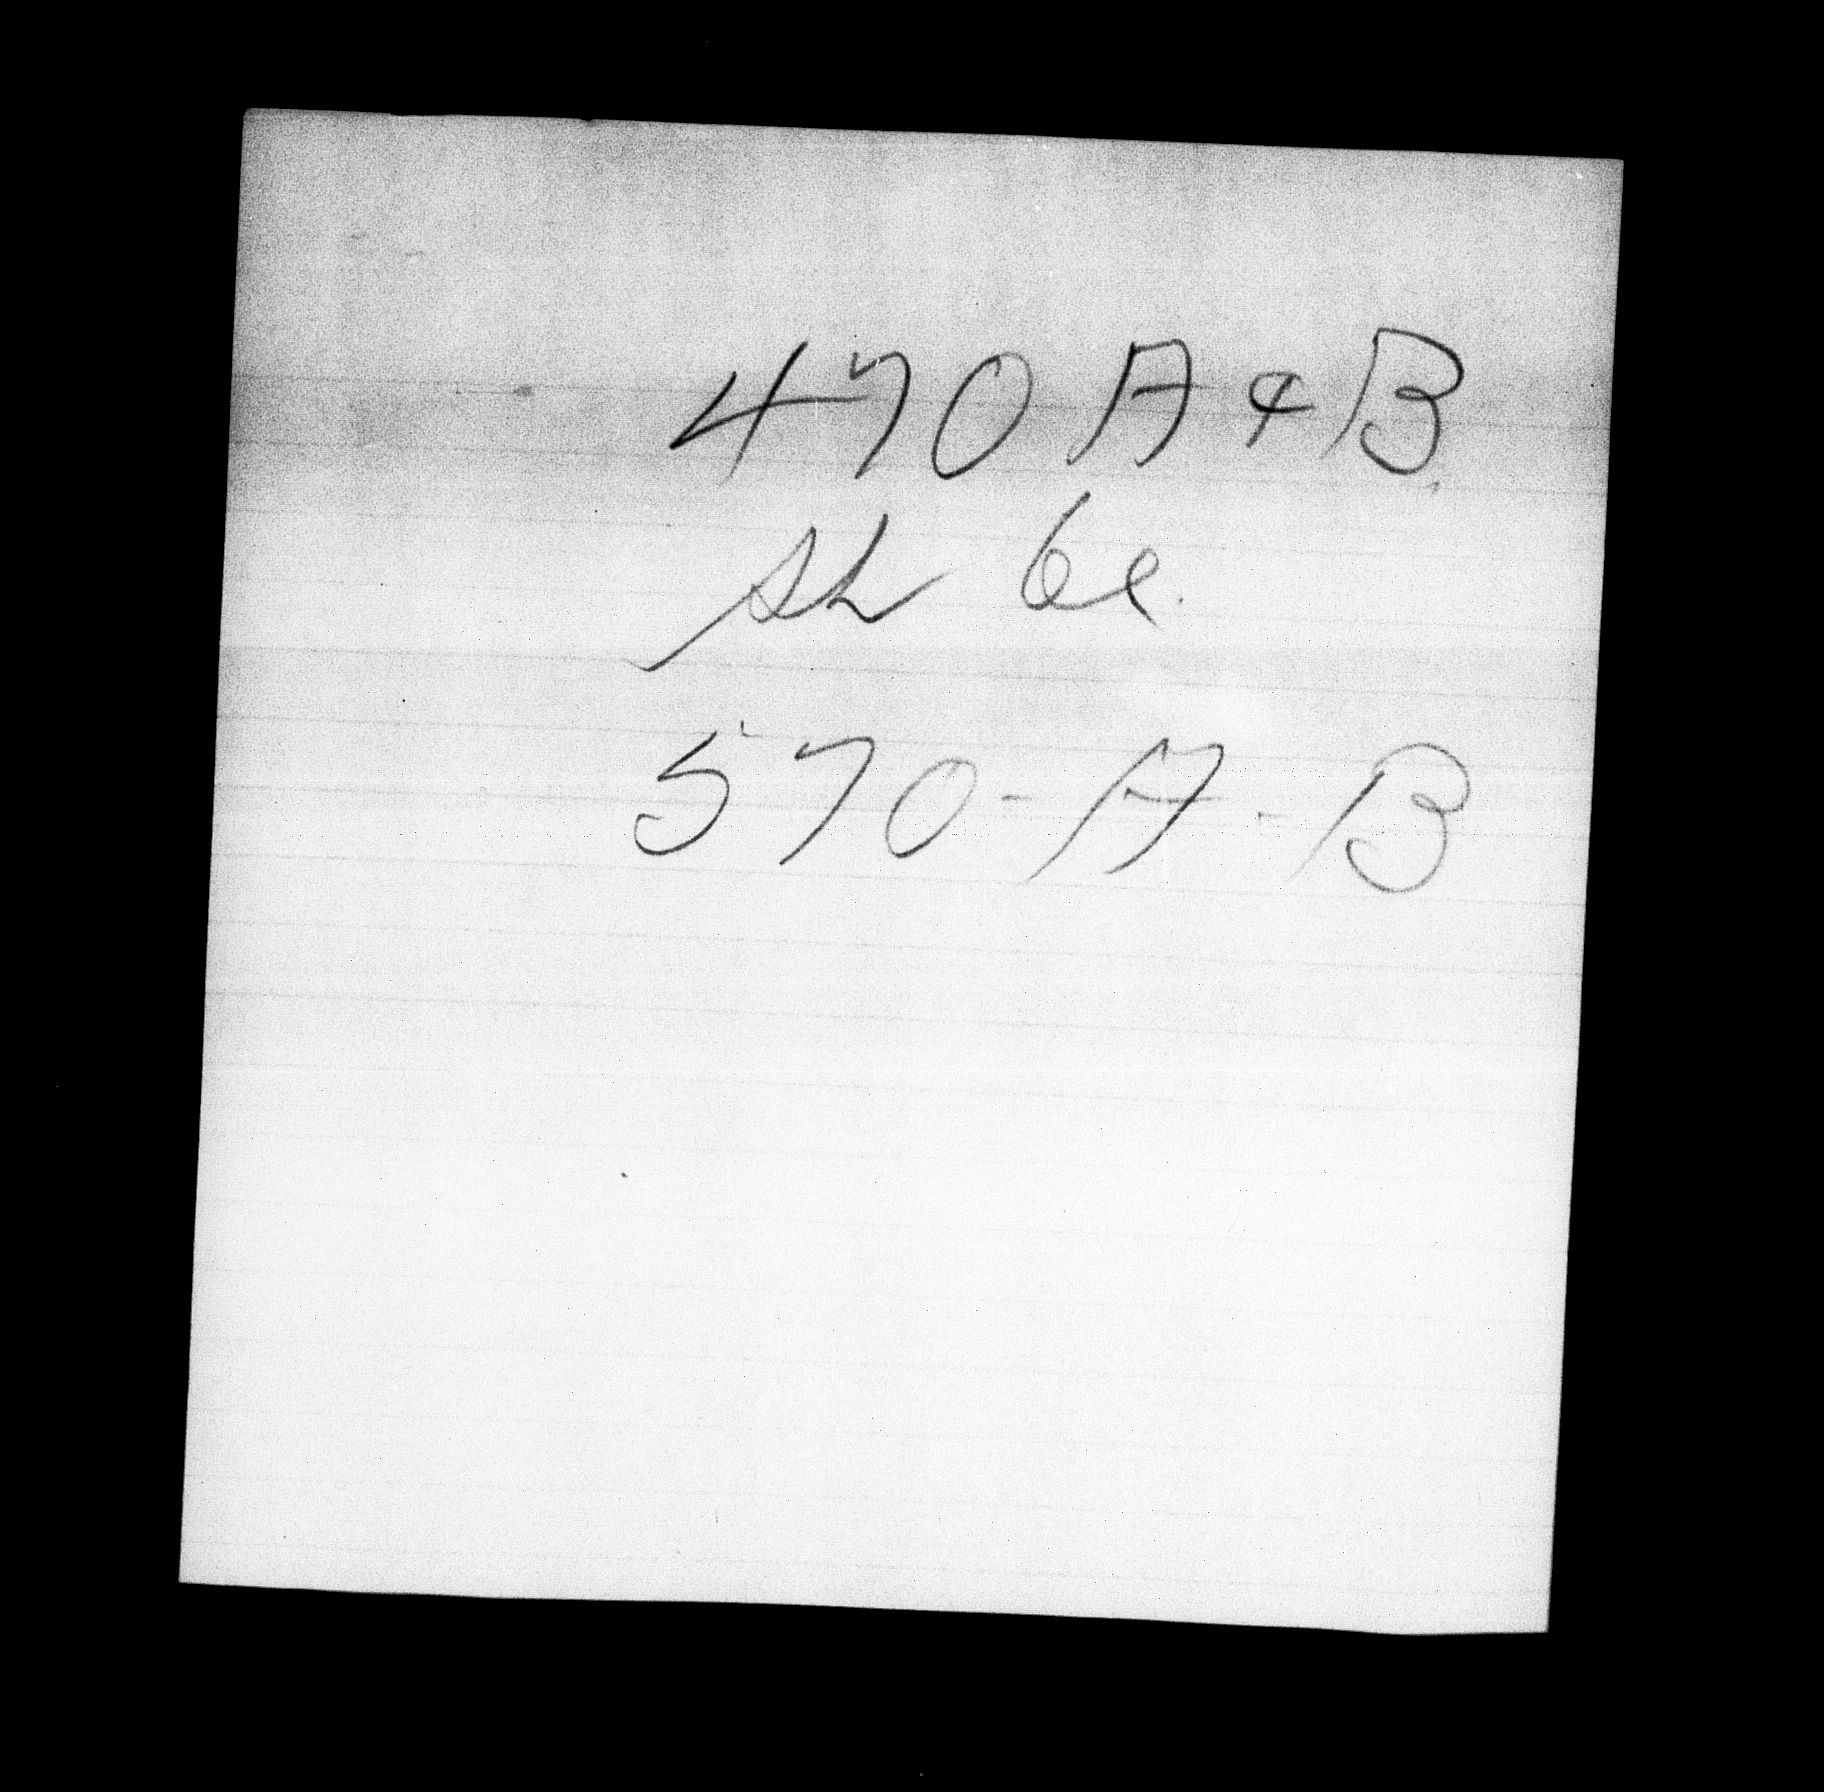 470 A & B
sh be
570-A-B